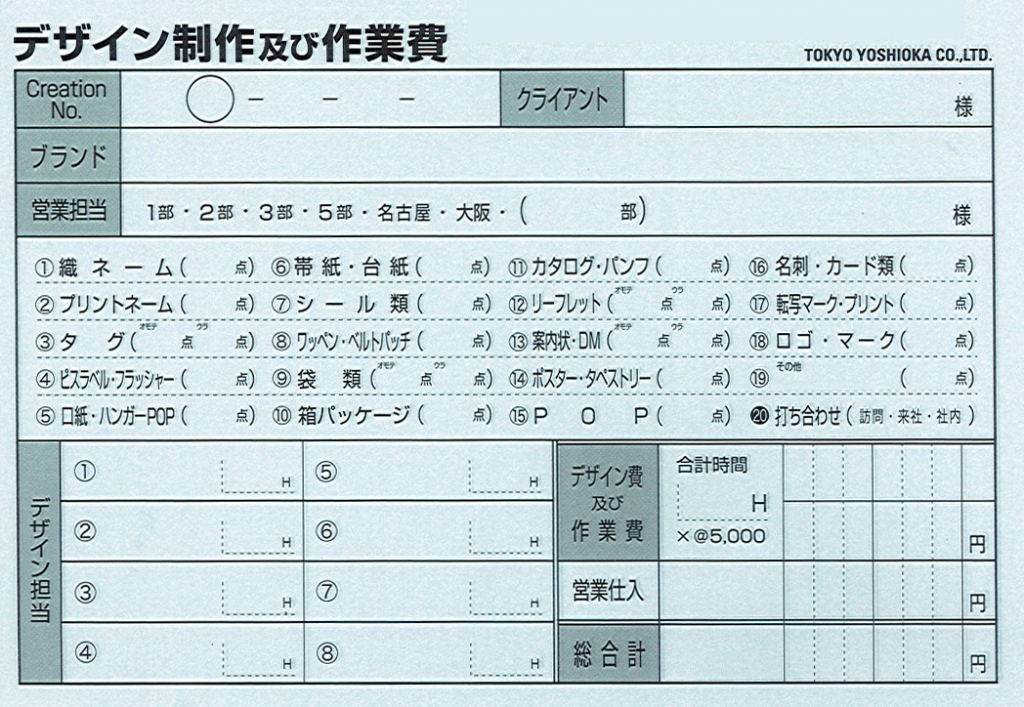 デザイン制作及び作業費
TOKYO YOSHIOKA CO.,LTD.
Creation No. ◯ － － － クライアント 様
ブランド
営業担当 1部・2部・3部・5部・名古屋・大阪・( 部) 様
①織ネーム( 点) ⑥帯紙・台紙( 点) ⑪カタログ・パンフ( 点) ⑯名刺・カード類( 点)
②プリントネーム( 点) ⑦シール類( 点) ⑫リーフレット(オモテ 点 ウラ 点) ⑰転写マーク・プリント( 点)
③タグ(オモテ 点 ウラ 点) ⑧ワッペン・ベルトパッチ( 点) ⑬案内状・DM(オモテ 点 ウラ 点) ⑱ロゴ・マーク( 点)
④ピスラベル・フラッシャー( 点) ⑨袋類(オモテ 点 ウラ 点) ⑭ポスター・タペストリー( 点) ⑲その他 ( 点)
⑤口紙・ハンガーPOP( 点) ⑩箱パッケージ( 点) ⑮POP( 点) ⑳打ち合わせ(訪問・来社・社内)
デザイン担当
① H ⑤ H
② H ⑥ H
③ H ⑦ H
④ H ⑧ H
デザイン費及び作業費 合計時間 H ×@5,000 円
営業仕入 円
総合計 円